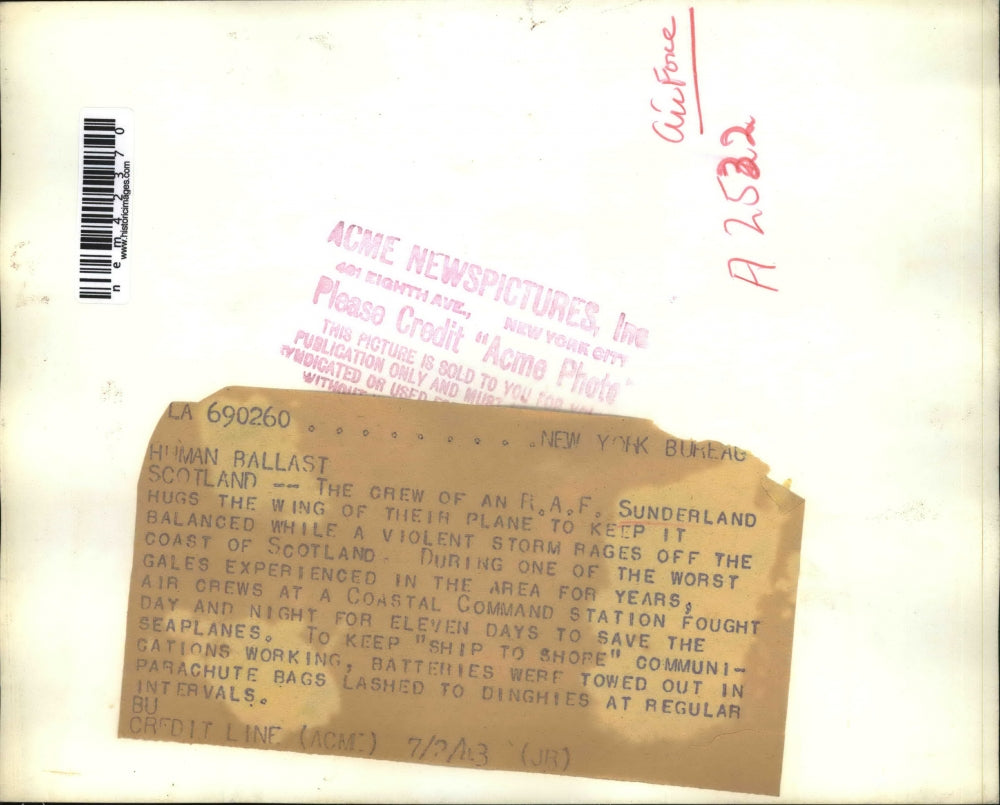 Air Force
A 2532
nem42370
www.historicimages.com
ACME NEWSPICTURES, Inc
461 EIGHTH AVE., NEW YORK CITY
Please Credit "Acme Photo"
THIS PICTURE IS SOLD TO YOU FOR
PUBLICATION ONLY AND MUST
SYNDICATED OR USED
WITHOUT
LA 690260 . . . . . . . . . . NEW YORK BUREAU
HUMAN BALLAST
SCOTLAND -- THE CREW OF AN R.A.F. SUNDERLAND
HUGS THE WING OF THEIR PLANE TO KEEP IT
BALANCED WHILE A VIOLENT STORM RAGES OFF THE
COAST OF SCOTLAND. DURING ONE OF THE WORST
GALES EXPERIENCED IN THE AREA FOR YEARS,
AIR CREWS AT A COASTAL COMMAND STATION FOUGHT
DAY AND NIGHT FOR ELEVEN DAYS TO SAVE THE
SEAPLANES. TO KEEP "SHIP TO SHORE" COMMUNI-
CATIONS WORKING, BATTERIES WERE TOWED OUT IN
PARACHUTE BAGS LASHED TO DINGHIES AT REGULAR
INTERVALS.
BU
CREDIT LINE (ACME) (JR)